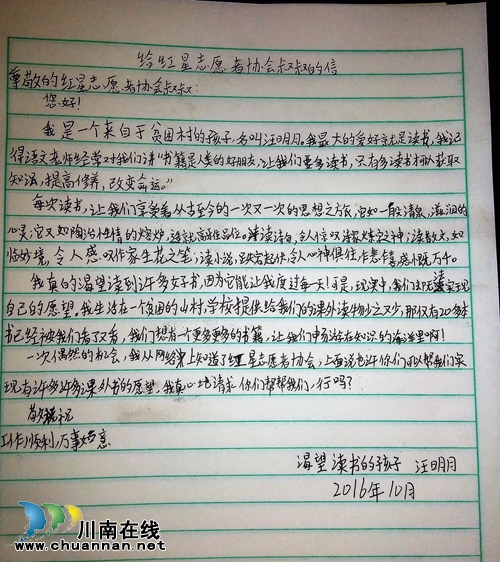 给红星志愿者协会叔叔的信
尊敬的红星志愿者协会叔叔:
您好!
我是一个来自于贫困村的孩子,名叫汪明月。我最大的爱好就是读书,我记
得语文老师经常对我们讲“书籍是人类的好朋友,让我们要多读书,只有多读书才以获取
知识,提高修养,改变命运。”
每次读书,让我们享受着从古至今的一次又一次的思想之旅,宛如一股清泉,滋润的
心灵;它又如陶冶性情的熔炉,造就高雅品位。读诗,令人惊叹诗家炼字之神;读散文,如
临妙境,令人感叹作家生花之笔;读小说,跌宕起伏,令人心神俱往,乍悲乍喜,感慨万千。
我真的渴望读到许多好书,因为它能让我度过每一天!可是,现实中,我们却无法实现
自己的愿望。我生活在一个贫困的山村,学校提供给我们的课外读物少之又少,那仅有20多本
书已经被我们看了又看,我们想有一个更多更多的书籍,让我们中畅游在知识的海洋里啊!
一次偶然的机会,我从网络上知道了红星志愿者协会,上面说也许你们可以帮我们实
现有许多许多课外书的愿望,我真心地请求你们帮帮我们,行吗?
敬祝
工作顺利,万事如意
渴望读书的孩子 汪明月
2016年10月
川南在线
www.chuannan.net